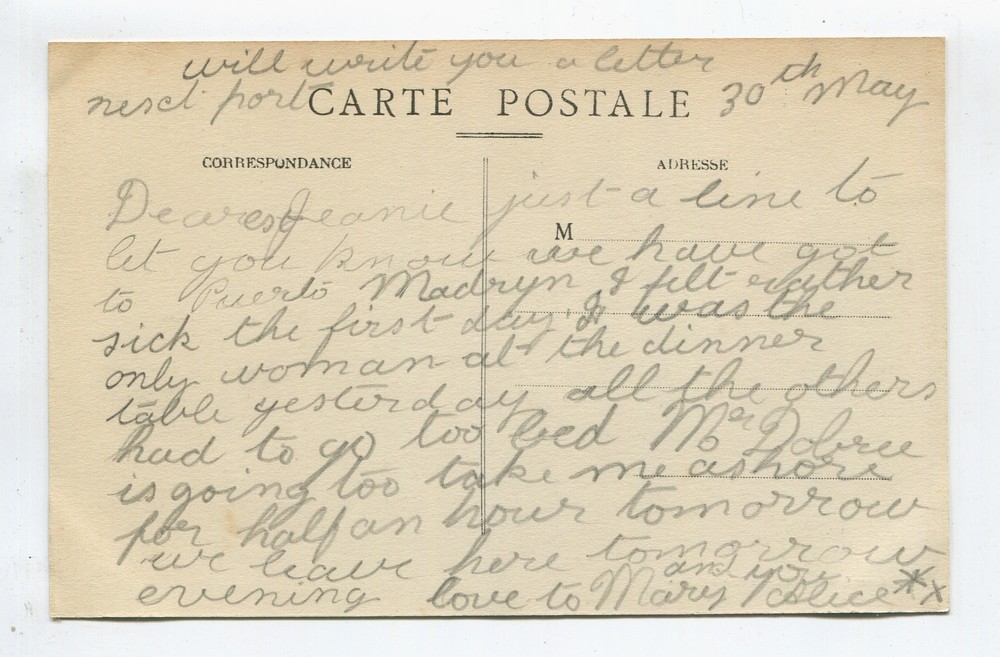 will write you a letter
nesct port
CARTE POSTALE
30th May
CORRESPONDANCE
ADRESSE
Dearest Jeanie just a line to
M
let you know we have got
to Puerto Madryn I felt rather
sick the first day. I was the
only woman at the dinner
table yesterday all the others
had to go too bed Mr Dobree
is going too take me ashore
for half an hour tomorrow
we leave here tomorrow
evening love to Mary and you
Alice xx